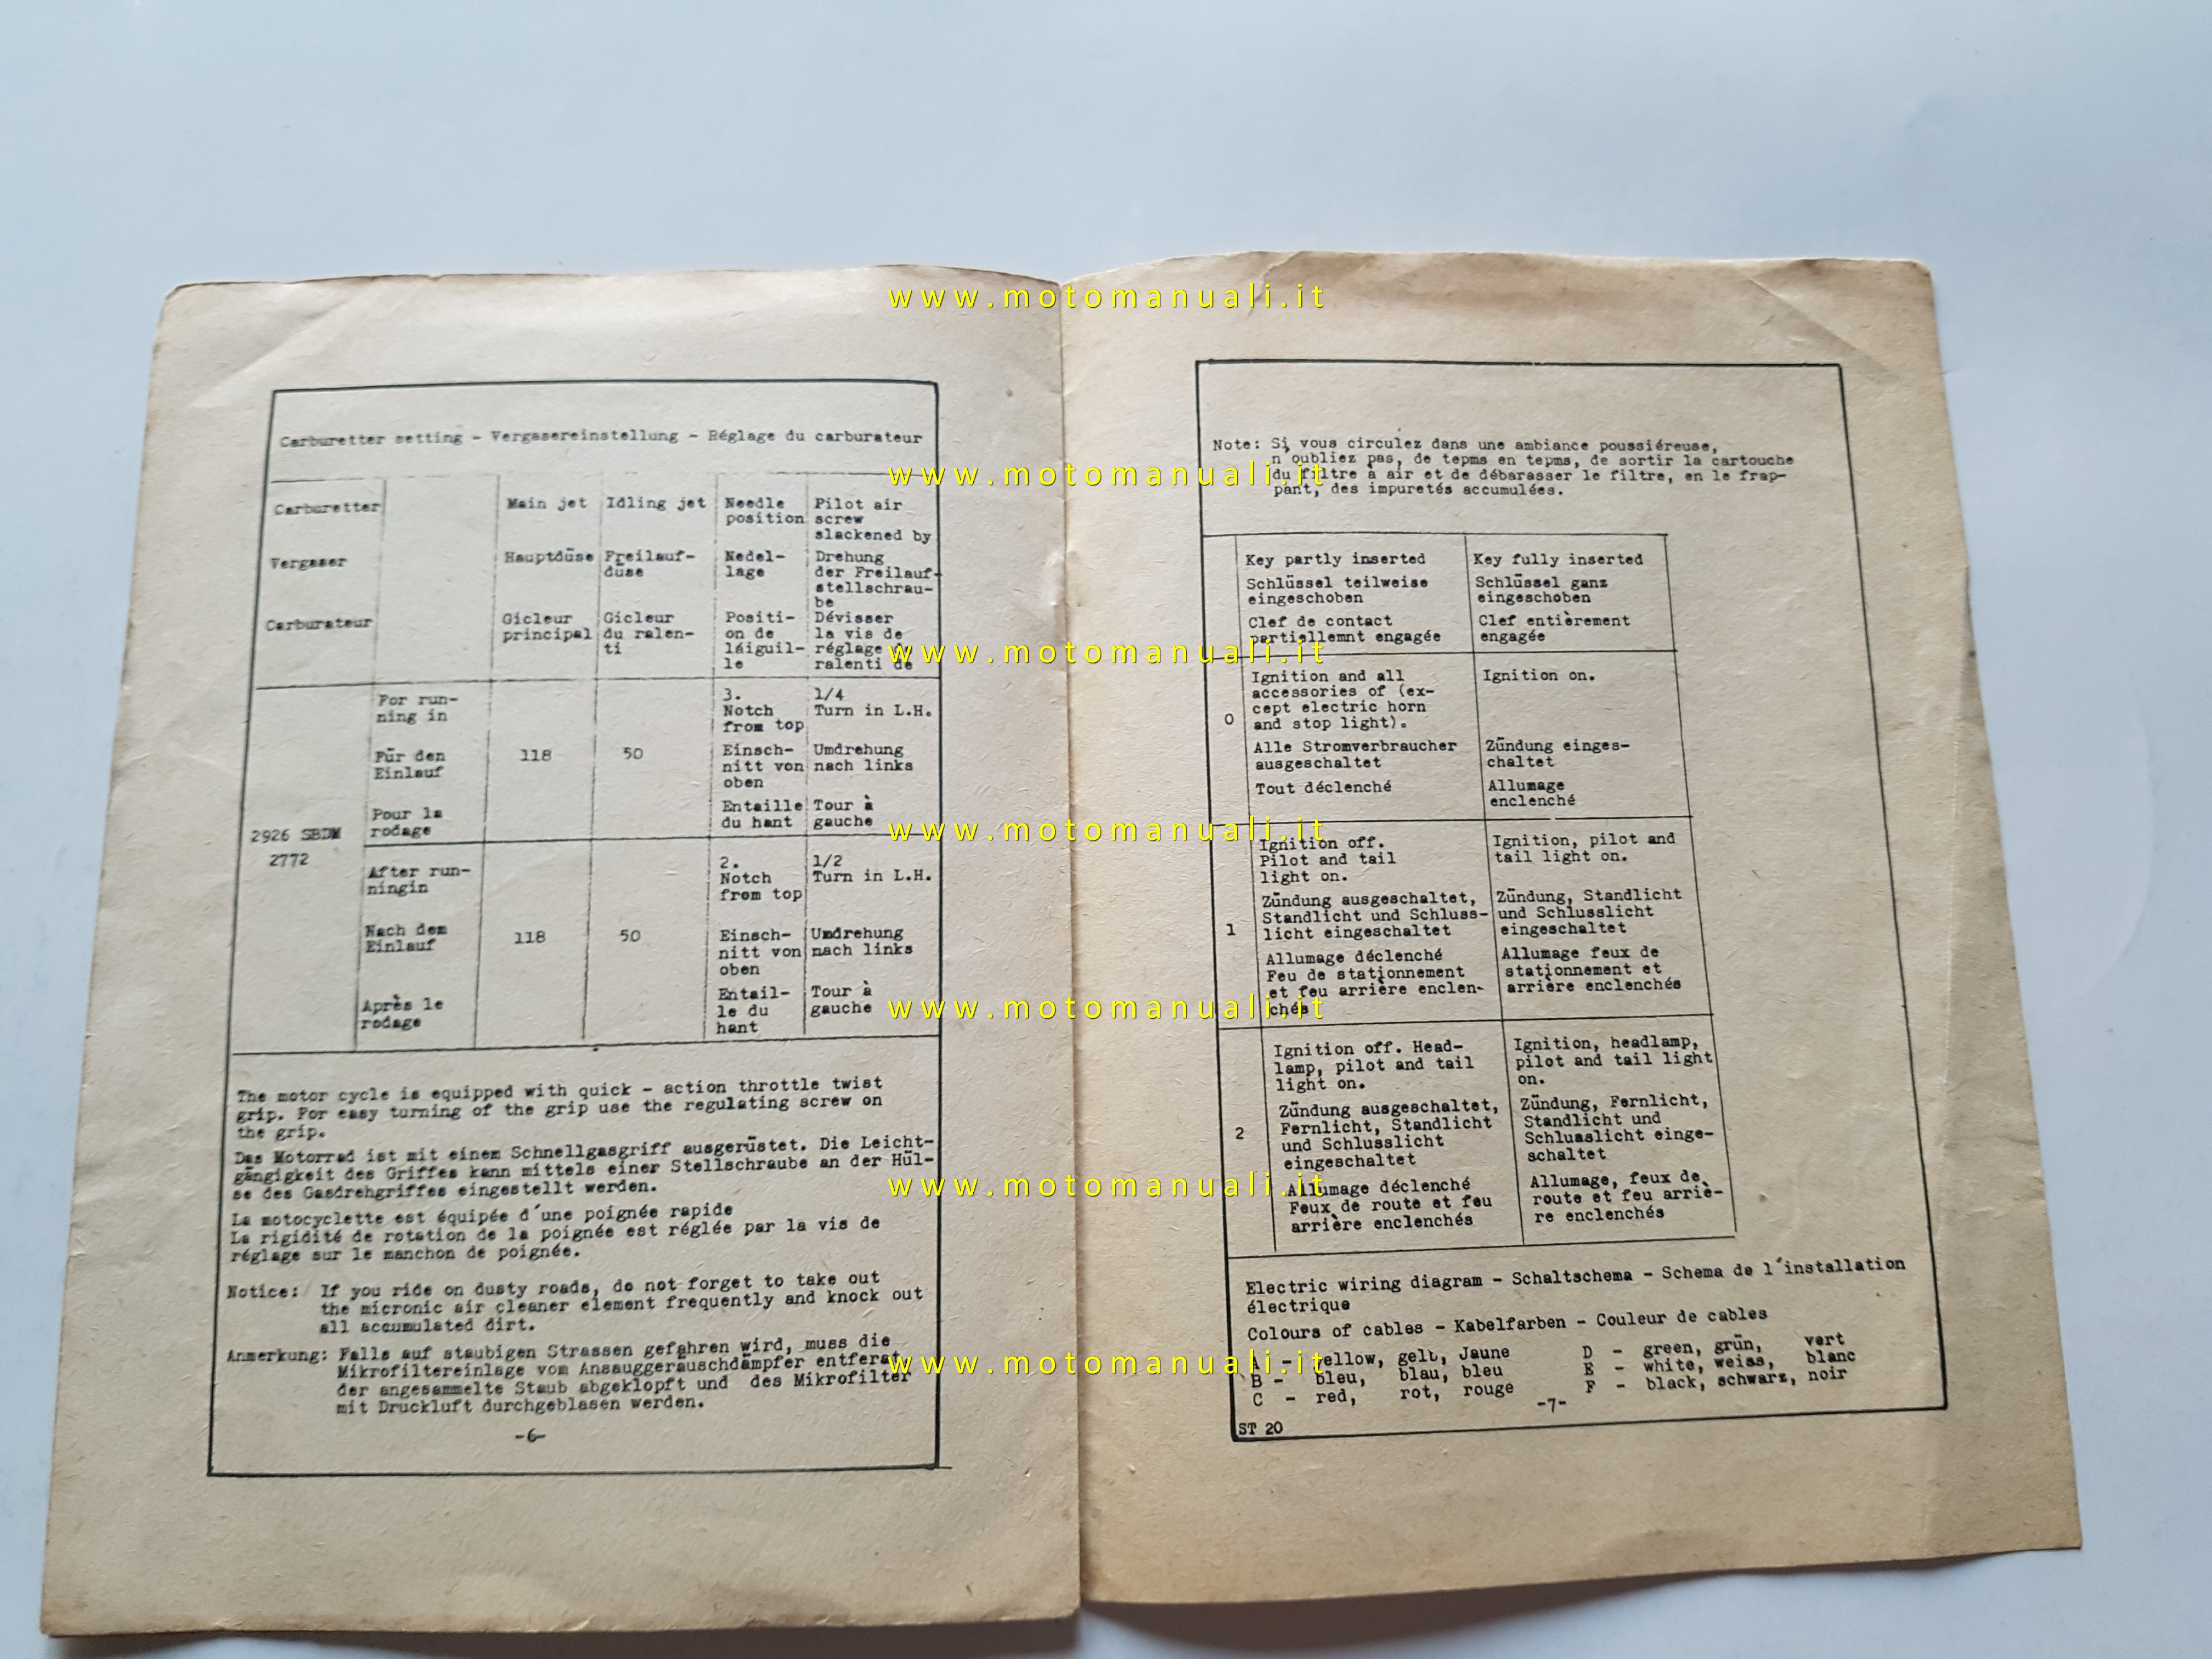 Carburetter setting - Vergasereinstellung - Réglage du carburateur
Carburetter
Main jet
Idling jet
Needle
position
Pilot air
screw
slackened by
Vergaser
Hauptdüse
Freilauf-
düse
Nedel-
lage
Drehung
der Freilauf-
stellschrau-
be
Carburateur
Gicleur
principal
Gicleur
du ralen-
ti
Positi-
on de
láiguil-
le
Dévisser
la vis de
réglage
ralenti de
2926 SBDM
2772
For run-
ning in
3.
Notch
from top
1/4
Turn in L.H.
Für den
Einlauf
118
50
Einsch-
nitt von
oben
Umdrehung
nach links
Pour la
rodage
Entaille
du hant
Tour à
gauche
After run-
ningin
2.
Notch
from top
1/2
Turn in L.H.
Nach dem
Einlauf
118
50
Einsch-
nitt von
oben
Umdrehung
nach links
Après le
rodage
Entail-
le du
hant
Tour à
gauche
The motor cycle is equipped with quick - action throttle twist
grip. For easy turning of the grip use the regulating screw on
the grip.
Das Motorrad ist mit einem Schnellgasgriff ausgerüstet. Die Leicht-
gängigkeit des Griffes kann mittels einer Stellschraube an der Hül-
se des Gasdrehgriffes eingestellt werden.
La motocyclette est équipée d'une poignée rapide
La rigidité de rotation de la poignée est réglée par la vis de
réglage sur le manchon de poignée.
Notice: If you ride on dusty roads, do not forget to take out
the micronic air cleaner element frequently and knock out
all accumulated dirt.
Anmerkung: Falls auf staubigen Strassen gefahren wird, muss die
Mikrofiltereinlage vom Ansauggeräuschdämpfer entfernt
der angesammelte Staub abgeklopft und des Mikrofilter
mit Druckluft durchgeblasen werden.
-6-
Note: Si vous circulez dans une ambiance poussiéreuse,
n'oubliez pas, de tepms en tepms, de sortir la cartouche
du filtre à air et de débarasser le filtre, en le frap-
pant, des impuretés accumulées.
Key partly inserted
Schlüssel teilweise
eingeschoben
Clef de contact
partiellemnt engagée
Key fully inserted
Schlüssel ganz
eingeschoben
Clef entièrement
engagée
0
Ignition and all
accessories of (ex-
cept electric horn
and stop light).
Alle Stromverbraucher
ausgeschaltet
Tout déclenché
Ignition on.
Zündung einges-
chaltet
Allumage
enclenché
1
Ignition off.
Pilot and tail
light on.
Zündung ausgeschaltet,
Standlicht und Schluss-
licht eingeschaltet
Allumage déclenché
Feu de stationnement
et feu arrière enclen-
chés
Ignition, pilot and
tail light on.
Zündung, Standlicht
und Schlusslicht
eingeschaltet
Allumage feux de
stationnement et
arrière enclenchés
2
Ignition off. Head-
lamp, pilot and tail
light on.
Zündung ausgeschaltet,
Fernlicht, Standlicht
und Schlusslicht
eingeschaltet
Allumage déclenché
Feux de route et feu
arrière enclenchés
Ignition, headlamp,
pilot and tail light
on.
Zündung, Fernlicht,
Standlicht und
Schlusslicht einge-
schaltet
Allumage, feux de
route et feu arriè-
re enclenchés
Electric wiring diagram - Schaltschema - Schema de l'installation
électrique
Colours of cables - Kabelfarben - Couleur de cables
A - yellow, gelt, Jaune
B - bleu, blau, bleu
C - red, rot, rouge
D - green, grün, vert
E - white, weiss, blanc
F - black, schwarz, noir
-7-
ST 20
www.motomanuali.it
www.motomanuali.it
www.motomanuali.it
www.motomanuali.it
www.motomanuali.it
www.motomanuali.it
www.motomanuali.it